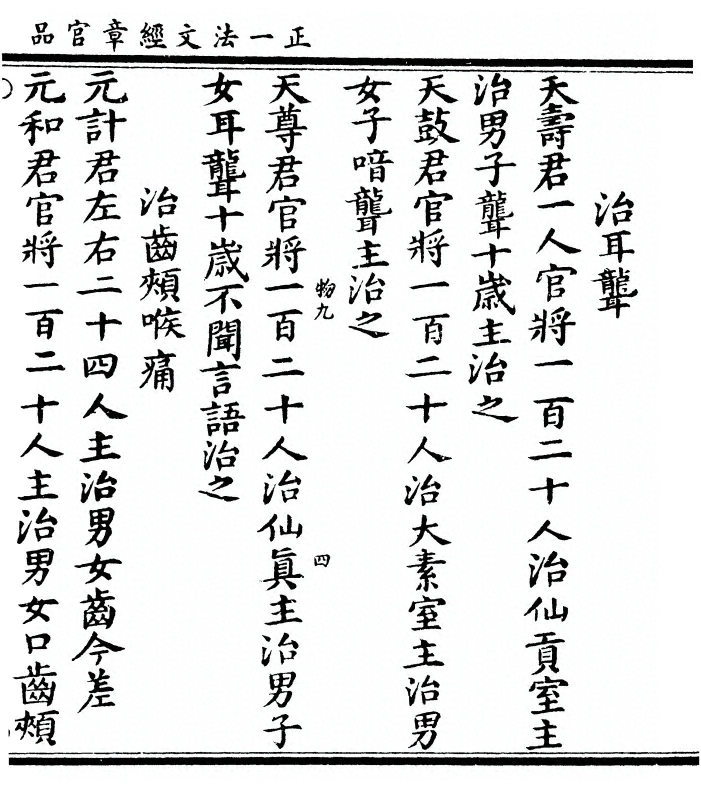 正一法文經章官品
治耳聾
天壽君一人官將一百二十人治仙貢室主
治男子聾十歲主治之
天鼓君官將一百二十人治大素室主治男
女子喑聾主治之
物九
四
天尊君官將一百二十人治仙眞主治男子
女耳聾十歲不聞言語治之
治齒頰喉痛
元計君左右二十四人主治男女齒令差
元和君官將一百二十人主治男女口齒頰